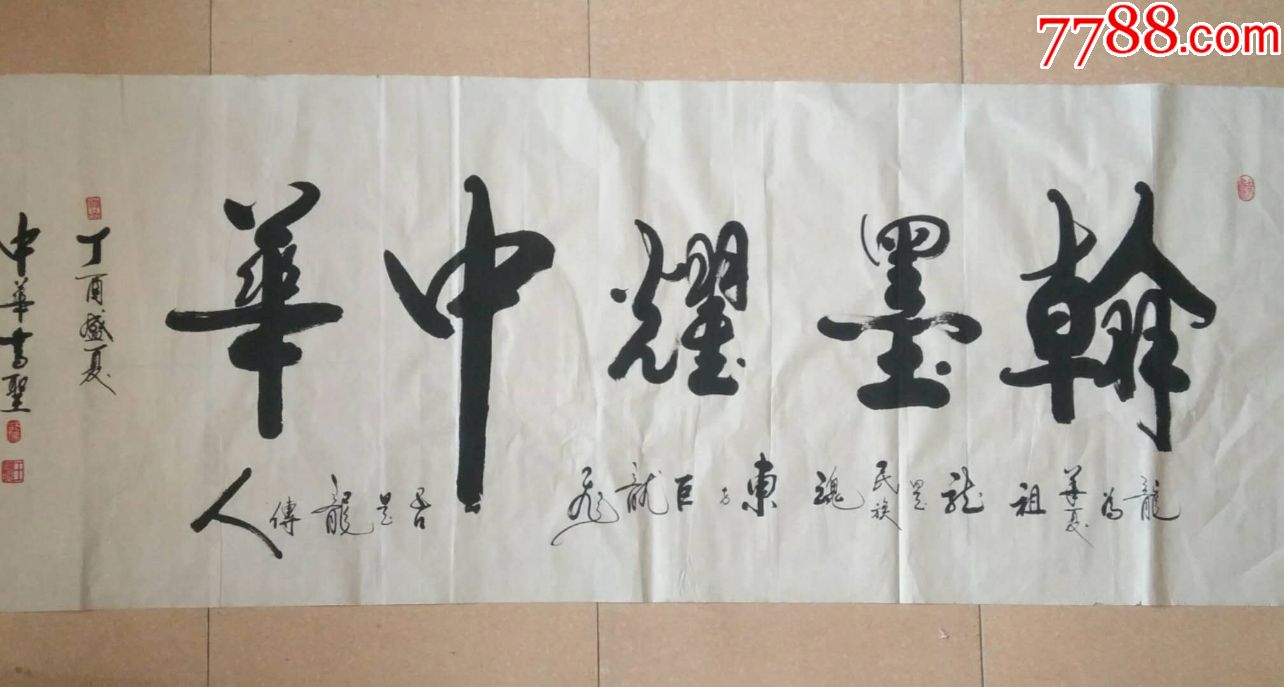 7788.com
翰墨耀中華
龍為華夏祖龍是民族魂東方巨龍飛
是龍傳人
丁酉盛夏
中華書聖